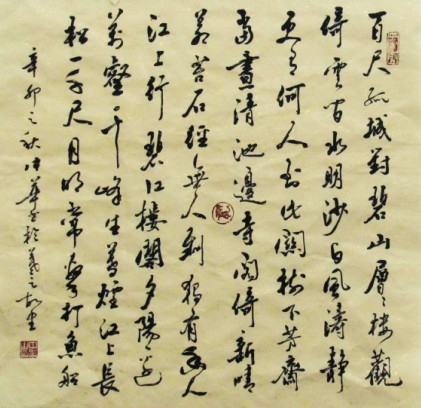 百尺孤城對碧山層々樓觀
倚雲間水明沙白風濤靜
更有何人到此樹下茅齋
當晝清池邊寺閣倚新晴
苔石徑無人到獨有幽人
江上行碧江樓閣夕陽邊
萬壑千峰生暮煙江上長
松一千尺月明常打魚船
辛卯之秋華書於羲之故里